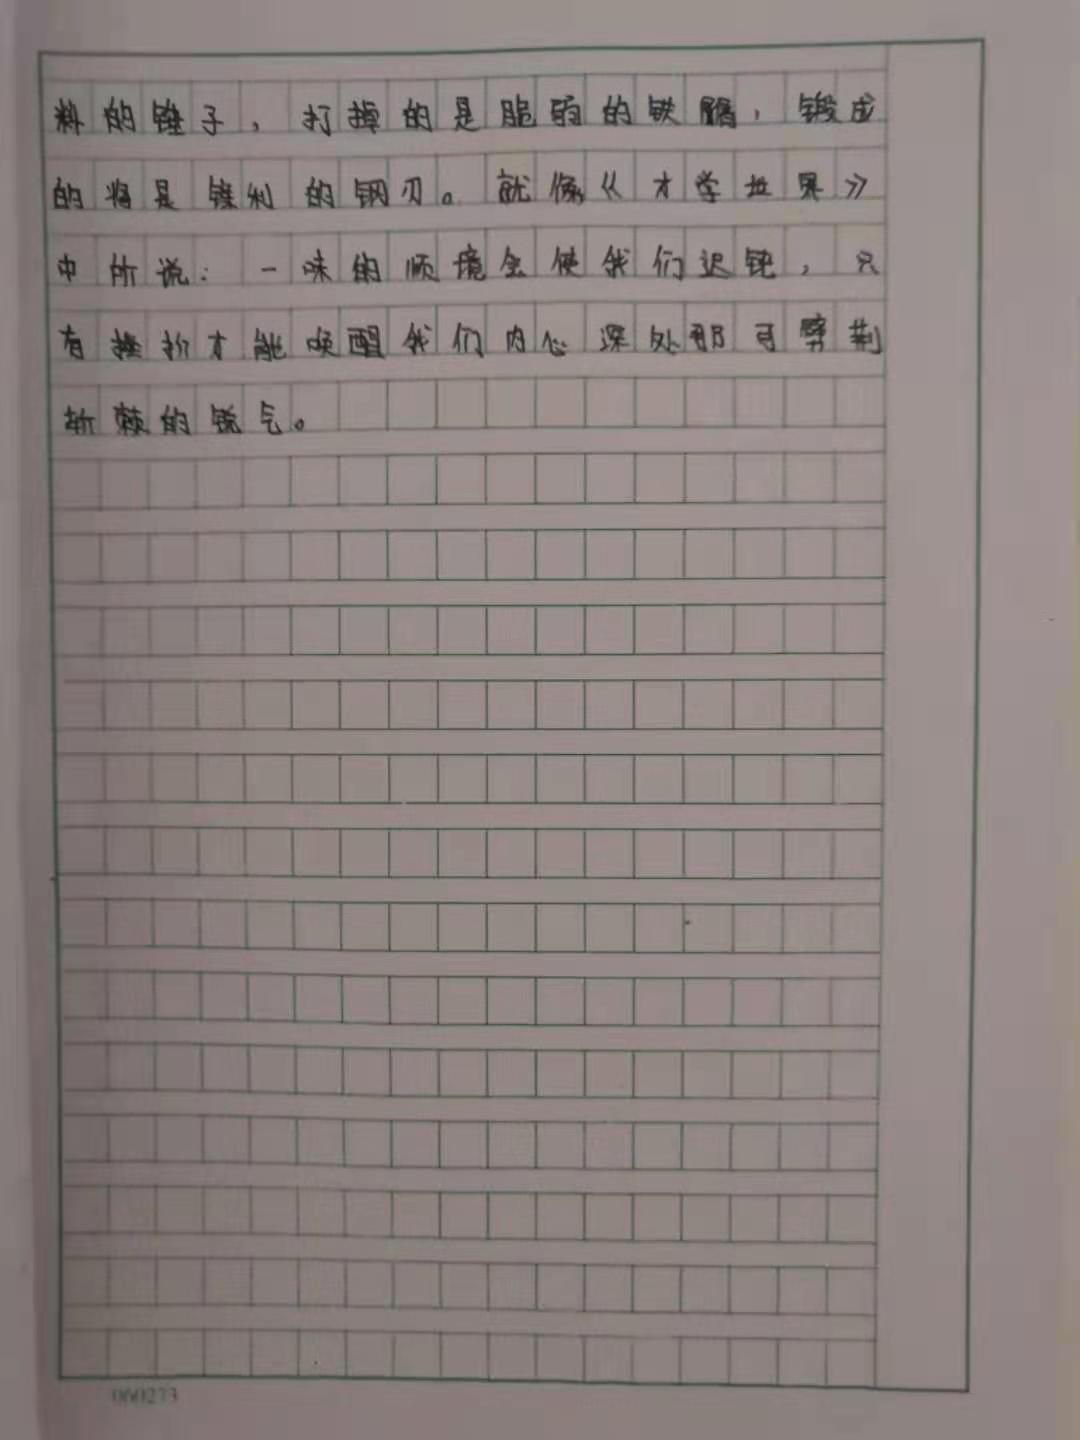 料的锤子，打掉的是脆弱的铁屑，锻成
的将是锋利的钢刃。就像《才学世界》
中所说：一味的顺境会使我们迟钝，只
有挫折才能唤醒我们内心深处那可劈荆
斩棘的锐气。
000273